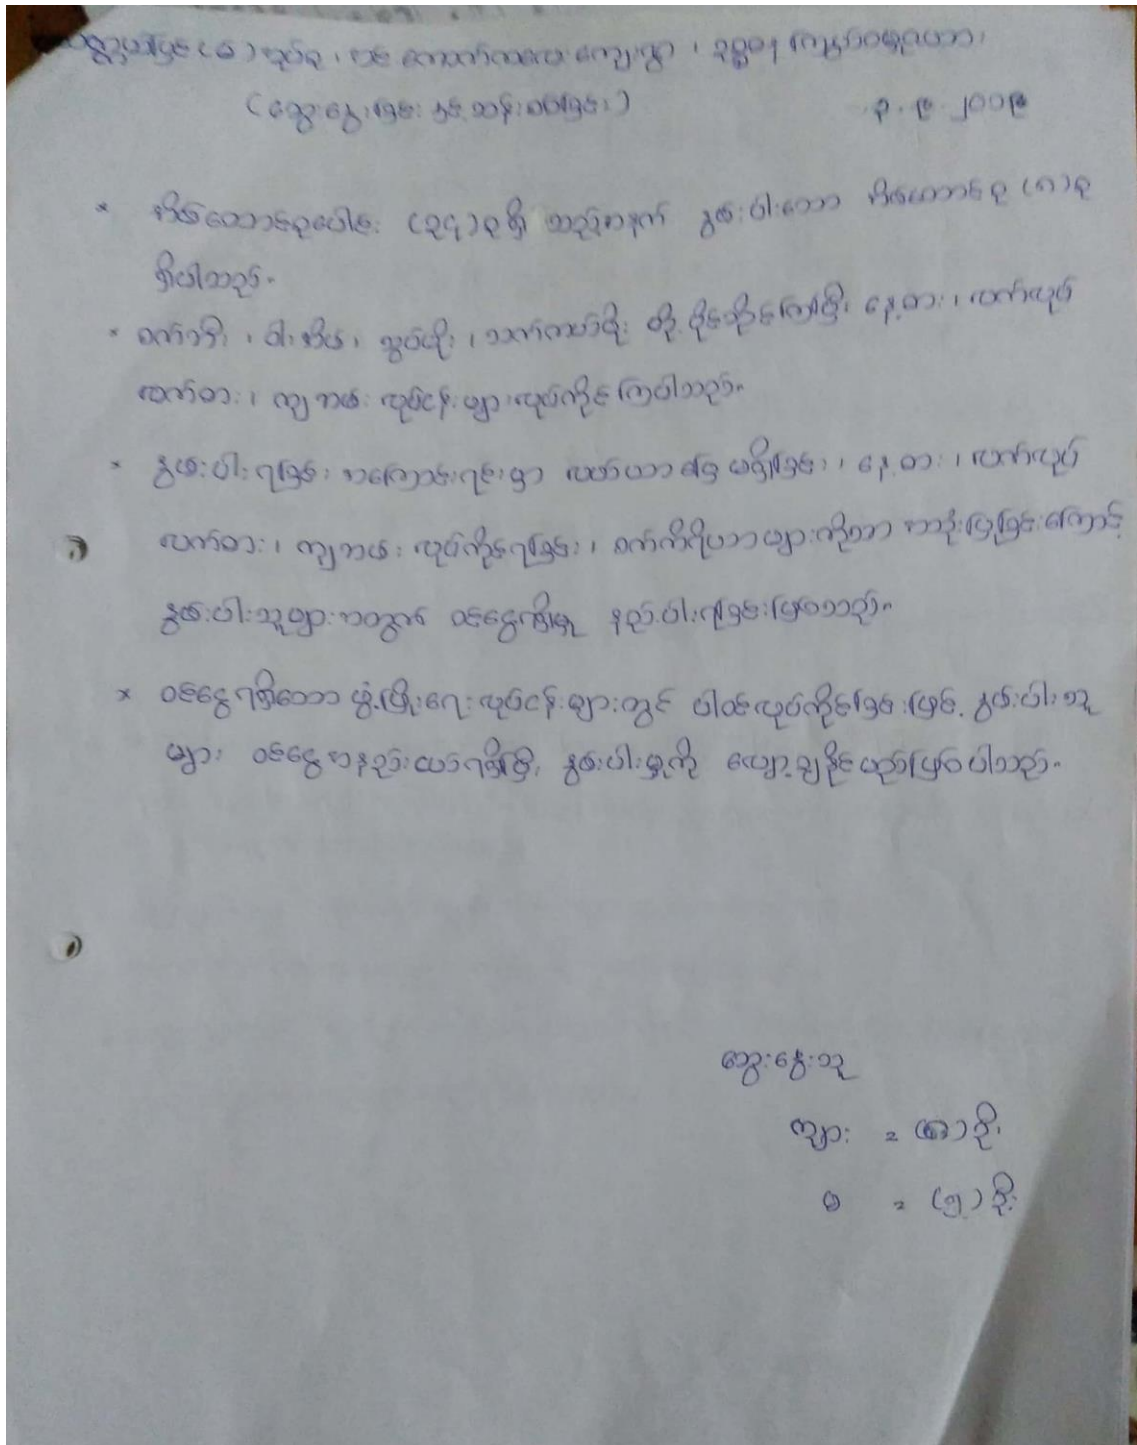 အုပ်စု ၊ ကျေးရွာ ၊
(ဆွေးနွေးခြင်း နှင့် ဆန်းစစ်ခြင်း) ၃.၉.၂၀၁၉
* အိမ်ထောင်စုပေါင်း (၃၄)စုရှိ သည့်အနက် နွမ်းပါးသော အိမ်ထောင်စု (၈)စု
ရှိပါသည်။
* ၊ ဝါးအိမ်၊ သွပ်မိုး ၊ သက်ကယ်မိုး တို့ ပိုင်ဆိုင်ကြပြီး နေ့စား ၊ လက်လုပ်
လက်စား ၊ ကျဘမ်း လုပ်ငန်းများ လုပ်ကိုင်ကြပါသည်။
* နွမ်းပါးရခြင်း အကြောင်းရင်းမှာ လယ်ယာမြေ မရှိခြင်း ၊ နေ့စား ၊ လက်လုပ်
လက်စား ၊ ကျဘမ်း လုပ်ကိုင်ရခြင်း ၊ စက်ကိရိယာများကိုသာ အသုံးပြုခြင်းကြောင့်
နွမ်းပါးသူများအတွက် ဝင်ငွေရရှိမှု နည်းပါးရခြင်းဖြစ်သည်။
* ဝင်ငွေရရှိသော ဖွံ့ဖြိုးရေးလုပ်ငန်းများတွင် ပါဝင်လုပ်ကိုင်ခြင်းဖြင့် နွမ်းပါးသူ
များ ဝင်ငွေအနည်းငယ်ရရှိပြီး နွမ်းပါးမှုကို လျော့ချနိုင်မည်ဖြစ်ပါသည်။
ဆွေးနွေးသူ
ကျား = (၈) ဦး
မ = (၅) ဦး